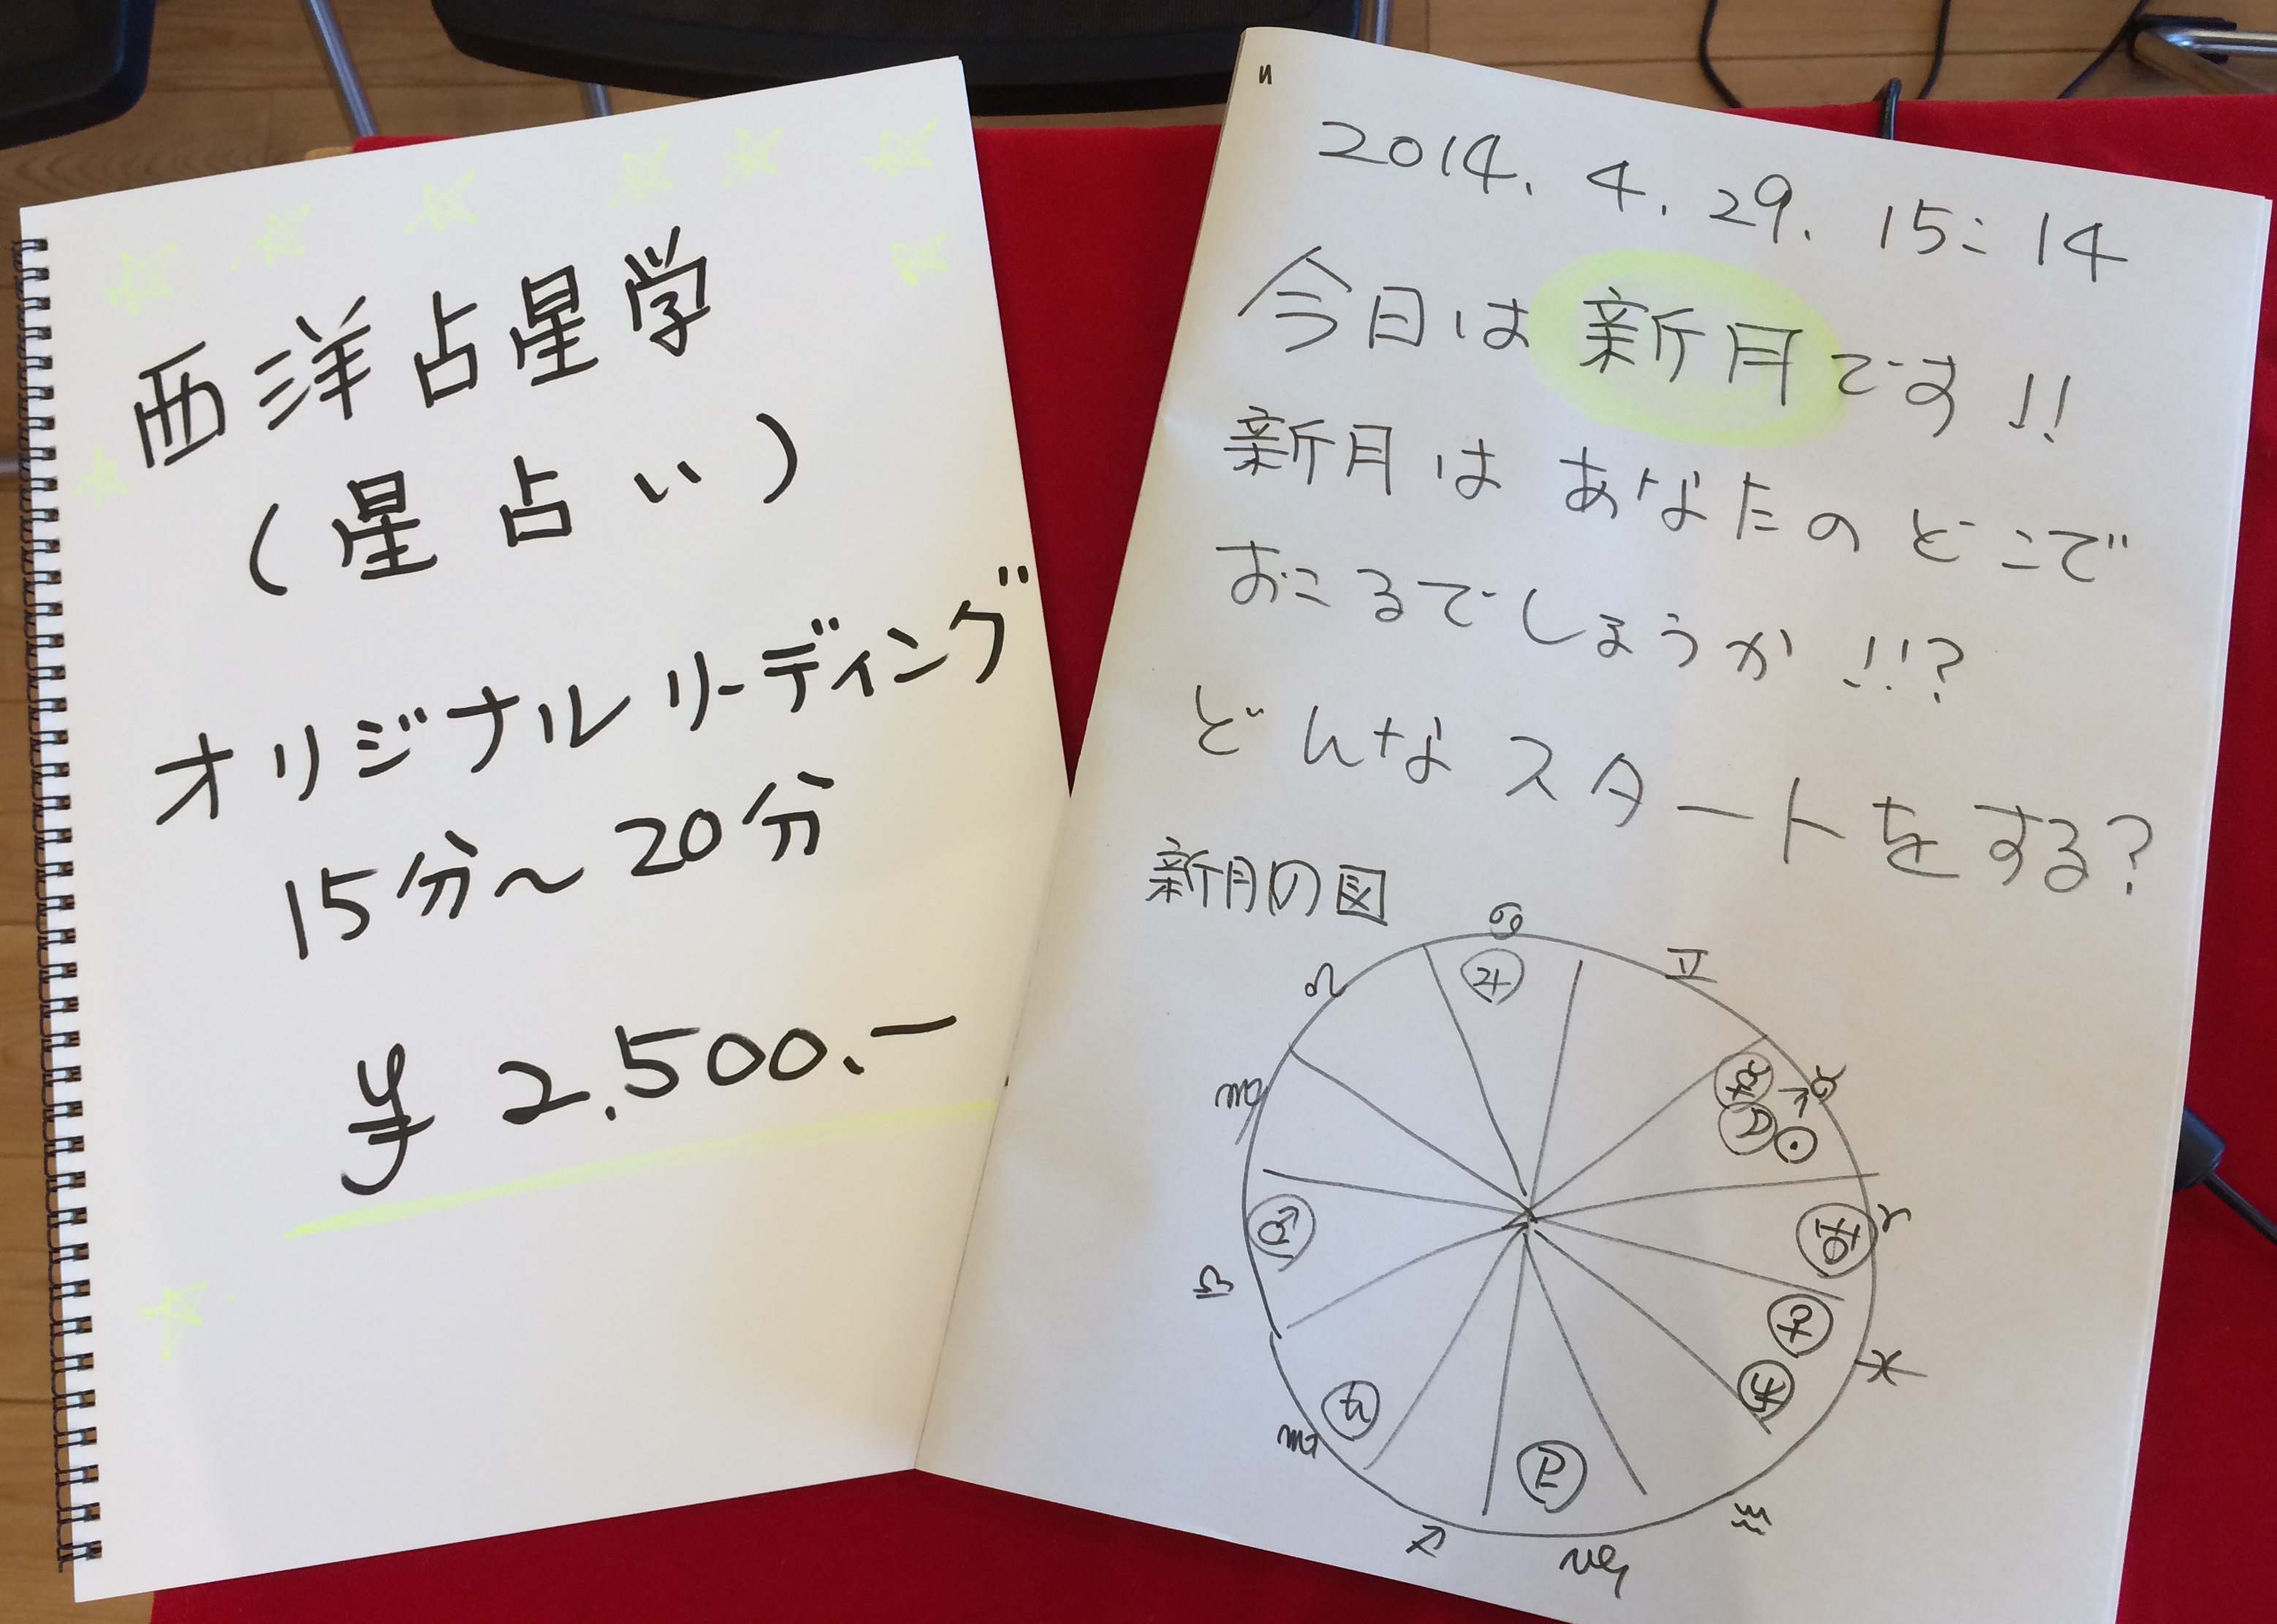 西洋占星学
(星占い)
オリジナルリーディング
15分～20分
¥2,500.ー
2014.4.29.15:14
今日は新月です!!
新月はあなたのどこで
おこるでしょうか!!?
どんなスタートをする?
新月の図
♋
♊
♌
♃
♉
☿
☽☉
♍
♈
♂
♅
♎
♀
♓
♆
♄
♏
♇
♒
♐
♑